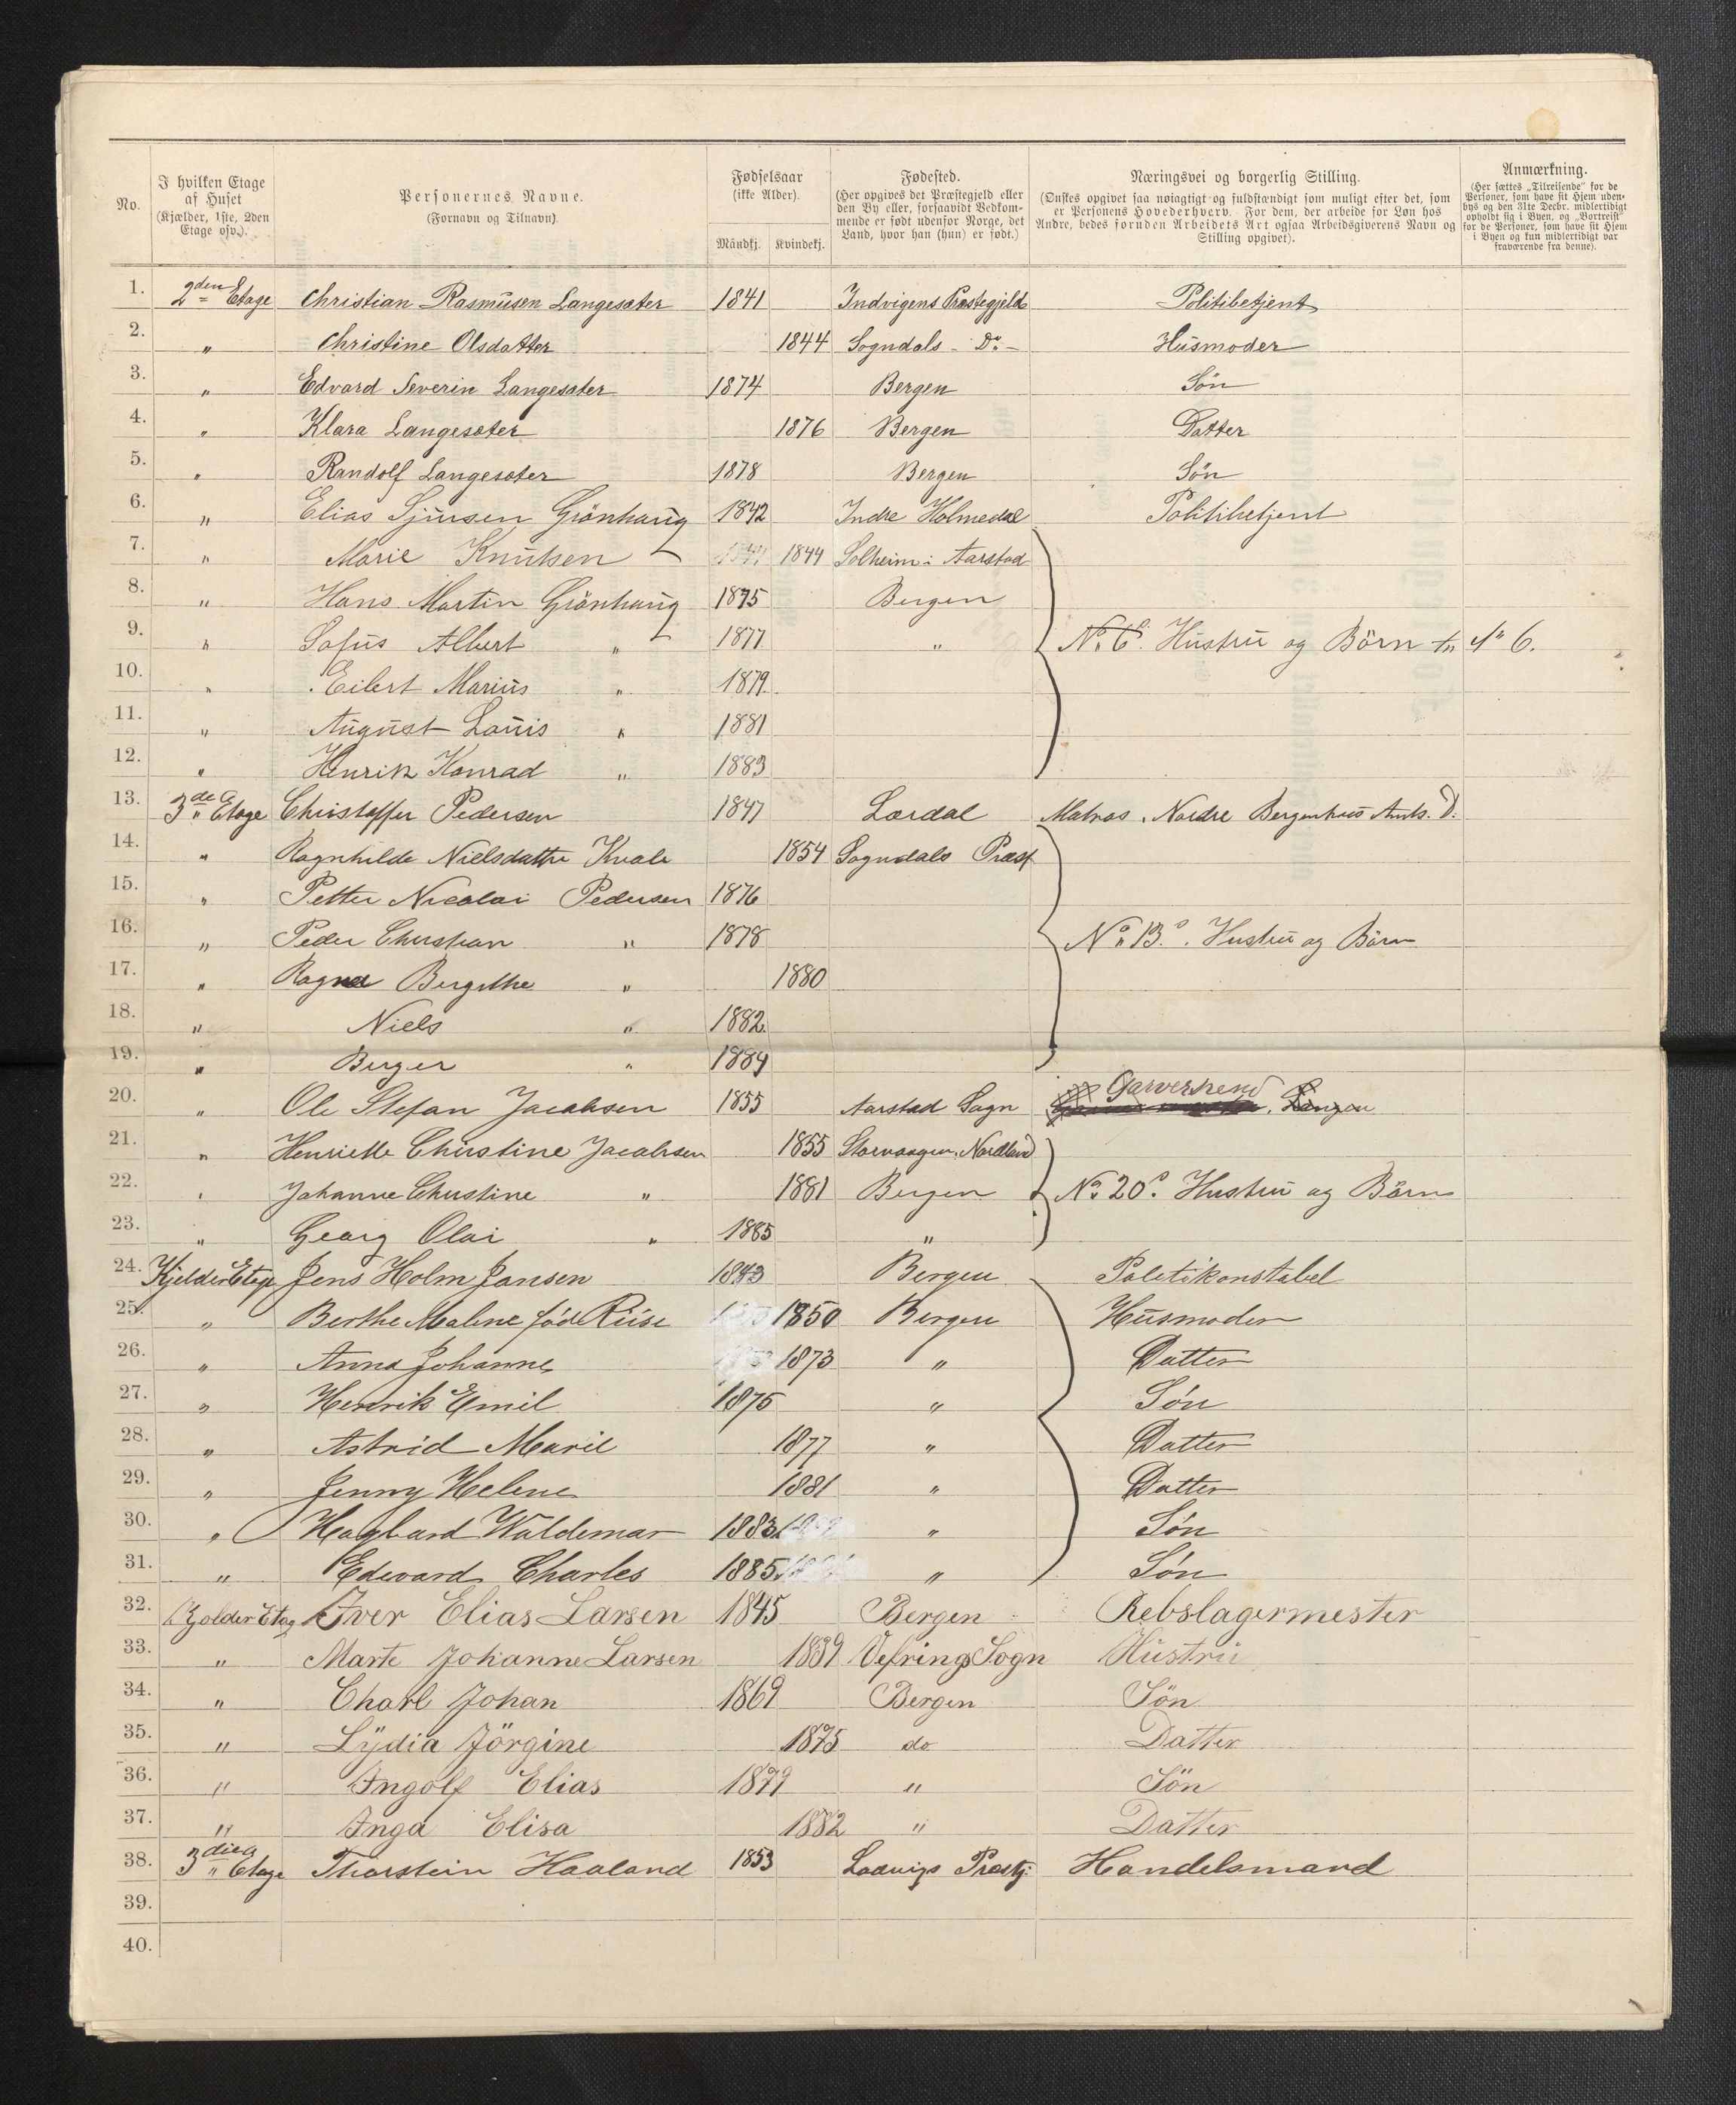 No.
I hvilken Etage af Huset (Kjælder, 1ste, 2den Etage osv.).
Personernes Navne. (Fornavn og Tilnavn).
Fødselsaar (ikke Alder).
Mandkj. Kvindekj.
Fødested. (Her opgives det Præstegjeld eller den By eller, forsaavidt Vedkommende er født udenfor Norge, det Land, hvor han (hun) er født.)
Næringsvei og borgerlig Stilling. (Ønskes opgivet saa nøiagtigt og fuldstændigt som muligt efter det, som er Personens Hovederhverv. For dem, der arbeide for Løn hos Andre, bedes foruden Arbeidets Art ogsaa Arbeidsgiverens Navn og Stilling opgivet).
Anmærkning. (Her sættes „Tilreisende“ for de Personer, som have sit Hjem udenbys og den 31te Decbr. midlertidigt opholdt sig i Byen, og „Bortreist“ for de Personer, som have sit Hjem i Byen og kun midlertidigt var fraværende fra denne).
1. 2den Etage Christian Rasmusen Langesæter 1841 Indvigens Præstegjeld Politibetjent
2. " Christine Olsdatter 1844 Sogndals - Do - Husmoder
3. " Edvard Severin Langesæter 1874 Bergen Søn
4. " Klara Langesæter 1876 Bergen Datter
5. " Randolf Langesæter 1878 Bergen Søn
6. " Elias Sjursen Grönhaug 1842 Indre Holmedal Politibetjent
7. " Marie Knutsen 1844 Solheim i Aarstad
8. " Hans Martin Grönhaug 1875 Bergen
9. " Sofus Albert " 1877 " No 6s Hustru og Börn 6.
10. " Eilert Marius " 1879
11. " August Louis " 1881
12. " Henrik Konrad " 1883
13. 3de Etage Christoffer Pedersen 1847 Lærdal Matros, Nordre Bergenhus Amts. D.
14. " Ragnhilde Nielsdatter Kvale 1854 Sogndals Præst
15. " Petter Nicolai Pedersen 1876
16. " Peder Christian " 1878 No 13s. Hustru og Börn
17. " Ragna Bergithe " 1880
18. " Niels " 1882
19. " Berger " 1884
20. " Ole Stefan Jacobsen 1855 Aarstad Sogn Garversvend
21. " Henriette Christine Jacobsen 1855 Storvaagen. Nordland
22. " Johanne Christine " 1881 Bergen No 20s. Hustru og Börn
23. " Georg Olai " 1885 "
24. Kjelder Etage Jens Holm Jansen 1843 Bergen Politikonstabel
25. " Berthe Malene fød Riise 1850 Bergen Husmoder
26. " Anna Johanne 1873 " Datter
27. " Henrik Emil 1875 " Søn
28. " Astrid Marie 1877 " Datter
29. " Jenny Helene 1881 " Datter
30. " Hagbard Waldemar 1883 " Søn
31. " Edward Charles 1885 " Søn
32. Kjolder Etag Iver Elias Larsen 1845 Bergen Rebslagermester
33. " Marte Johanne Larsen 1839 Vefring Sogn Hustru
34. " Charl Johan 1869 Bergen Sön
35. " Lydia Jörgine 1875 do Datter
36. " Ingolf Elias 1879 " Sön
37. " " Inga Elisa 1882 " Datter
38. 3die Etage Thorstein Haaland 1853 Præstg: Handelsmand
39.
40.